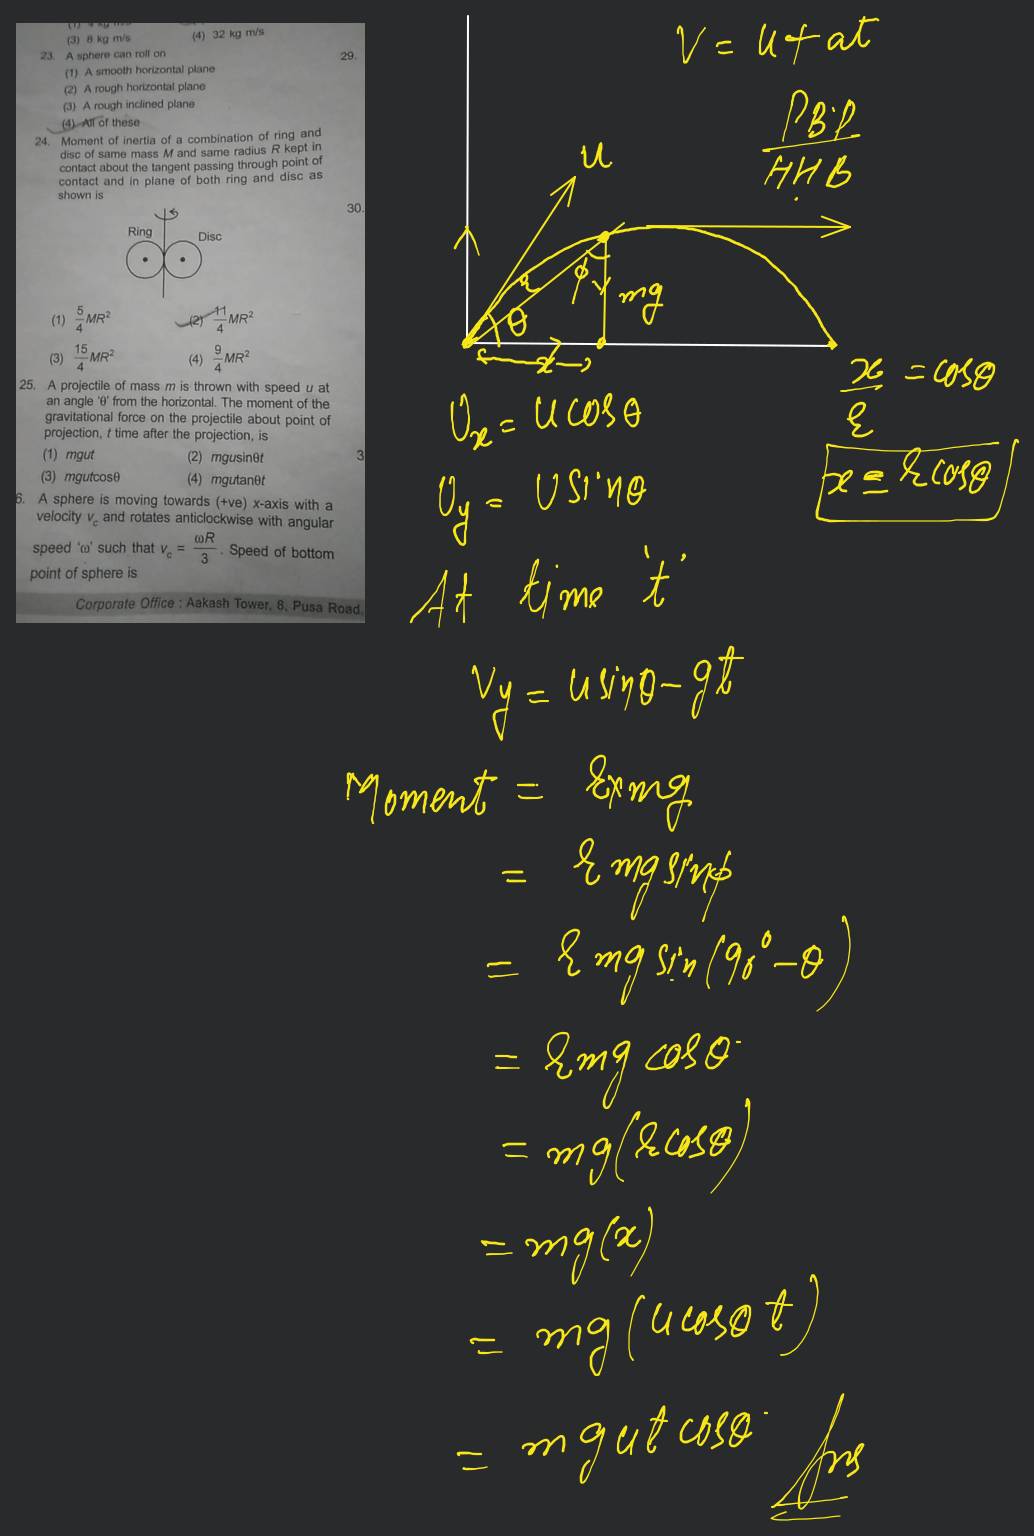 (3) 8 kg m/s
(4) 32 kg m/s
23. A sphere can roll on
(1) A smooth horizontal plane
(2) A rough horizontal plane
(3) A rough inclined plane
(4) All of these
24. Moment of inertia of a combination of ring and
disc of same mass M and same radius R kept in
contact about the tangent passing through point of
contact and in plane of both ring and disc as
shown is
Ring
Disc
(1) 5/4 MR²
(2) 11/4 MR²
(3) 15/4 MR²
(4) 9/4 MR²
25. A projectile of mass m is thrown with speed u at
an angle 'θ' from the horizontal. The moment of the
gravitational force on the projectile about point of
projection, t time after the projection, is
(1) mgut
(2) mgusinθt
(3) mgutcosθ
(4) mgutanθt
6. A sphere is moving towards (+ve) x-axis with a
velocity v_c and rotates anticlockwise with angular
speed 'ω' such that v_c = ωR/3 . Speed of bottom
point of sphere is
Corporate Office : Aakash Tower, 8, Pusa Road
29.
30.
3
V = u + at
PBP
HHB
u
r
ϕ
θ
mg
x
x/r = cosθ
x = r cosθ
U_x = u cosθ
U_y = U sinθ
At time 't'
V_y = u sinθ - gt
Moment = r x mg
= r mg sinϕ
= r mg sin(90° - θ)
= r mg cosθ
= mg(r cosθ)
= mg(x)
= mg(u cosθ t)
= mgut cosθ Ans